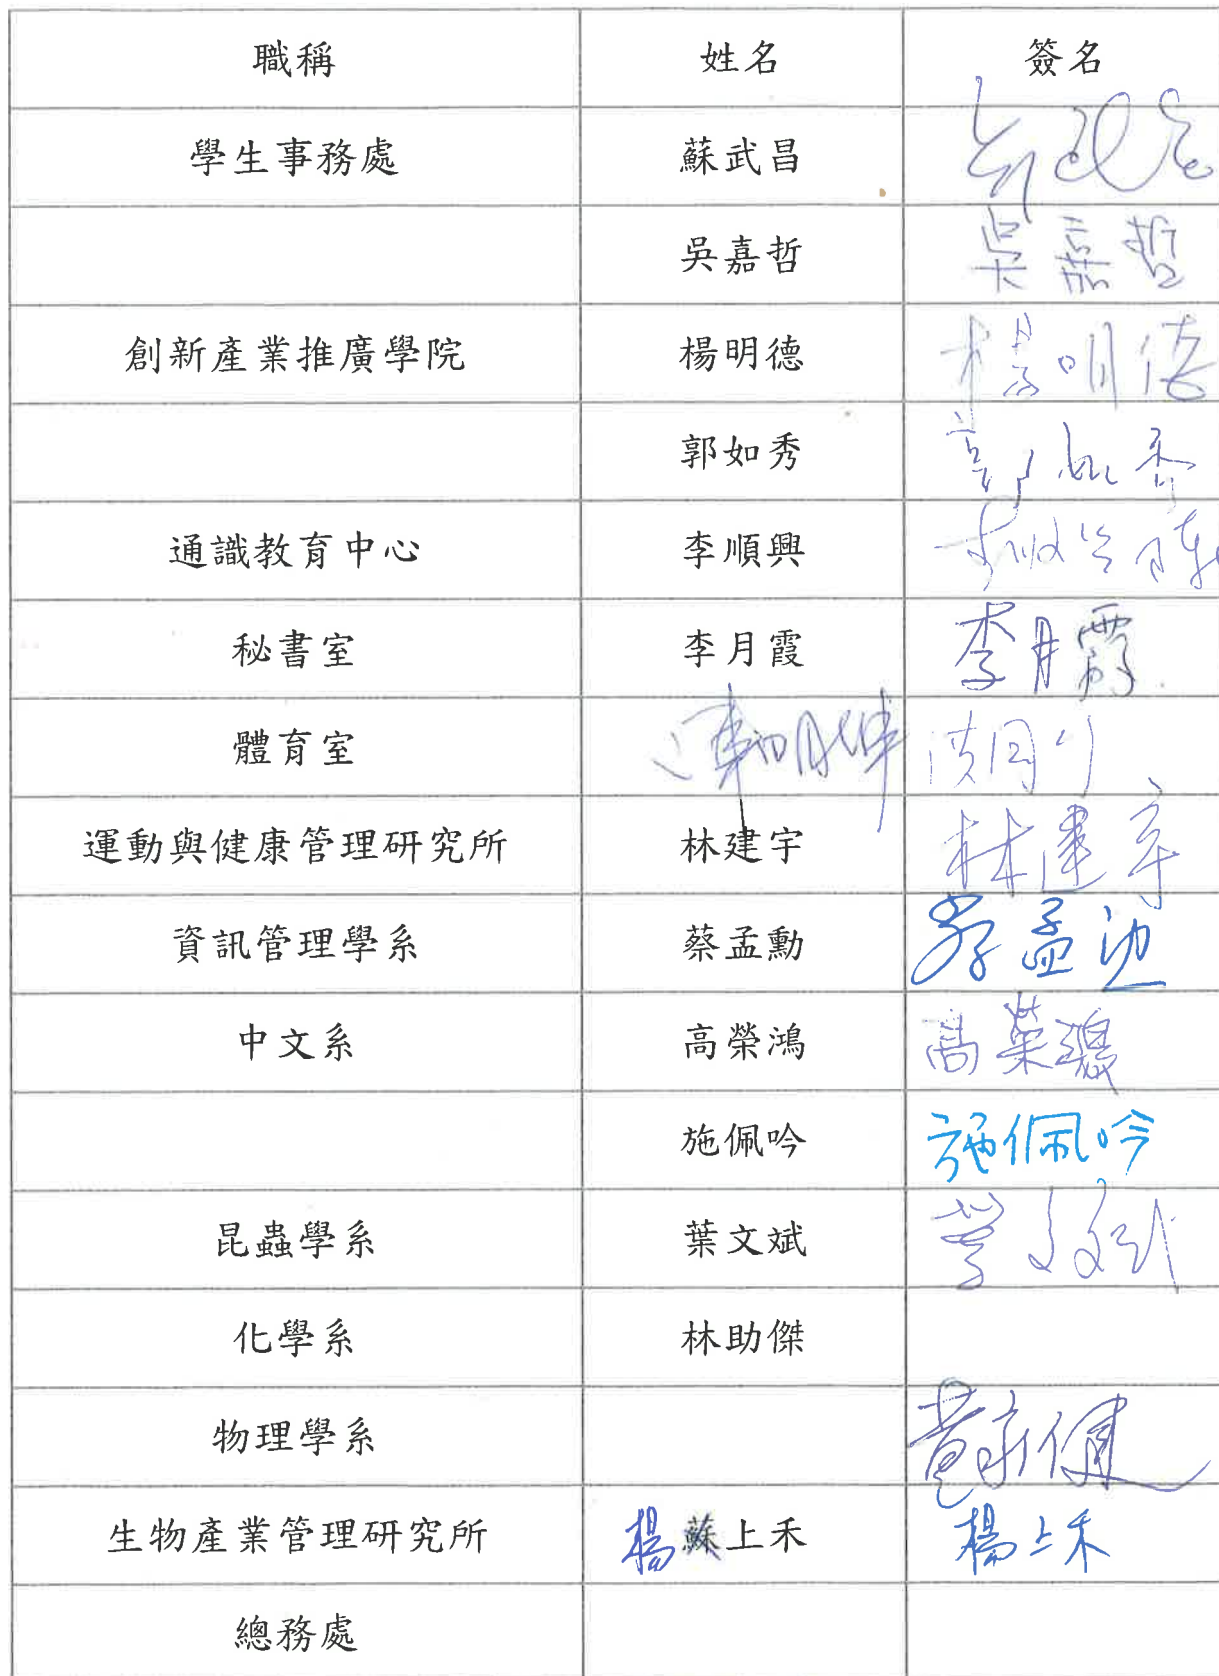 職稱 姓名 簽名
學生事務處 蘇武昌
吳嘉哲 吳嘉哲
創新產業推廣學院 楊明德 楊明德
郭如秀 郭如秀
通識教育中心 李順興
秘書室 李月霞 李月霞
體育室
運動與健康管理研究所 林建宇 林建宇
資訊管理學系 蔡孟勳 蔡孟勳
中文系 高榮鴻 高榮鴻
施佩吟 施佩吟
昆蟲學系 葉文斌 葉文斌
化學系 林助傑
物理學系
生物產業管理研究所 楊蘇上禾 楊上禾
總務處